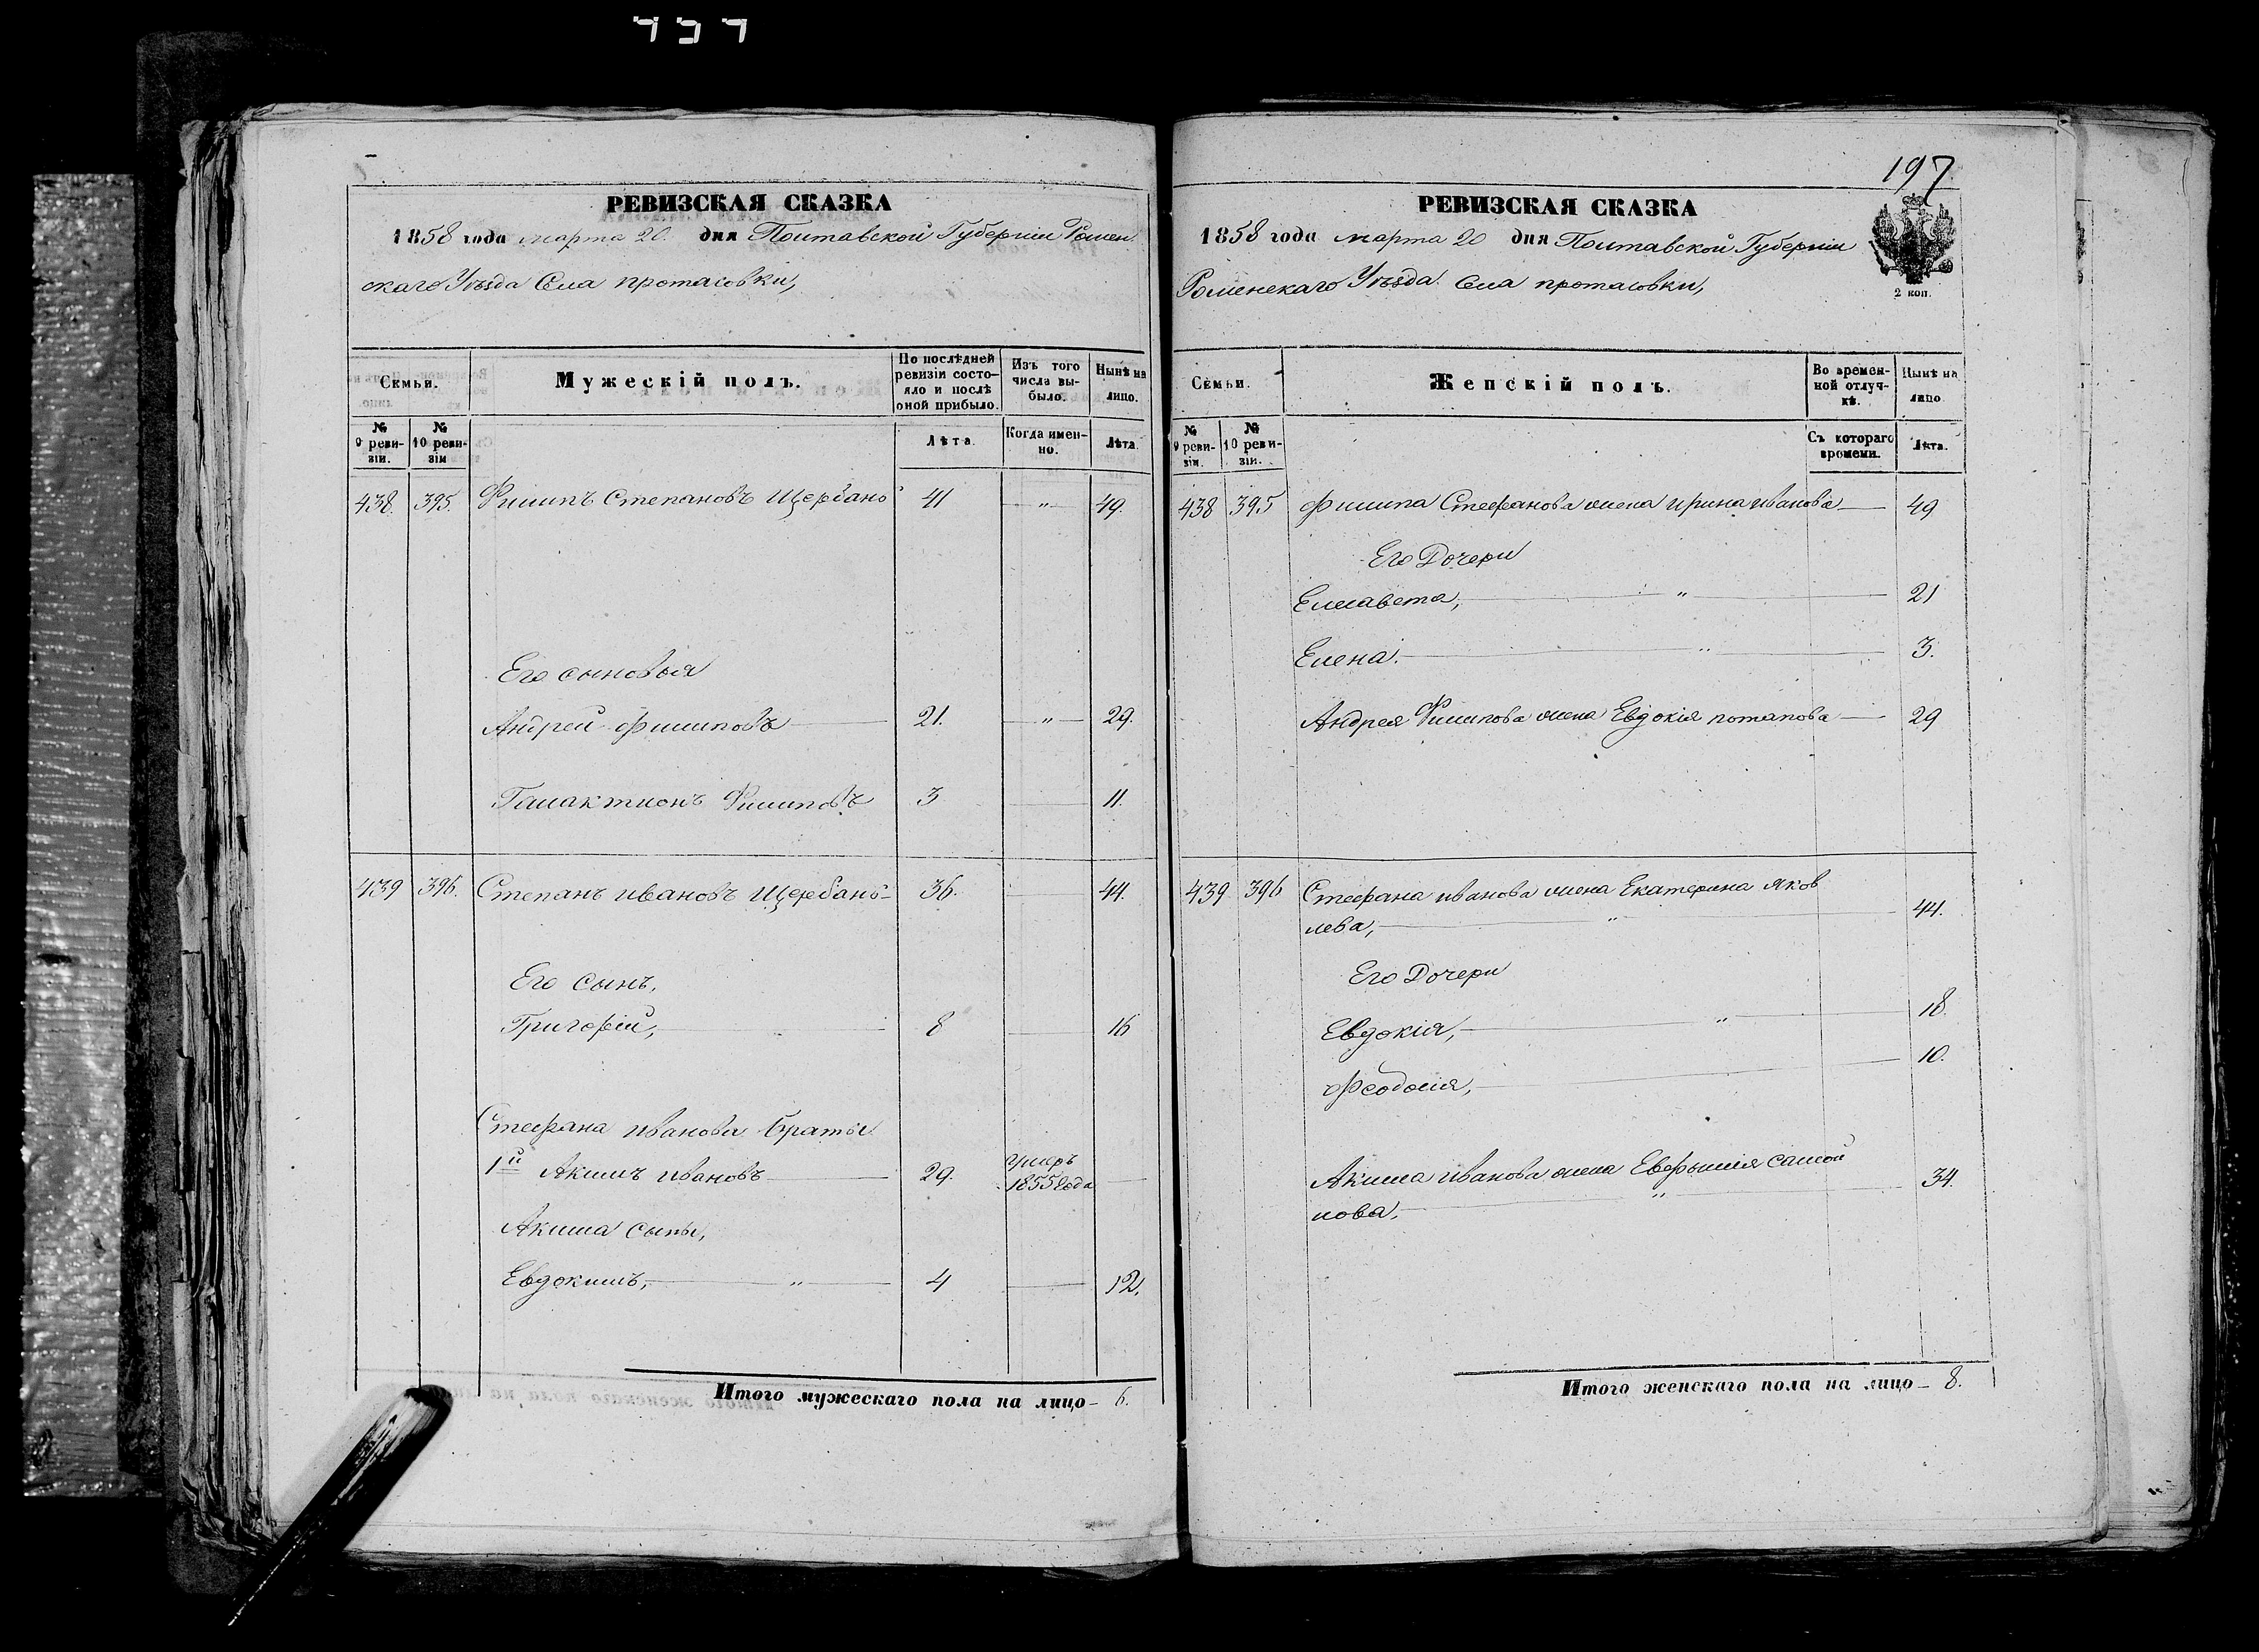 197
РЕВИЗСКАЯ СКАЗКА
1858 года марта 20. дня Полтавской Губерніи Ромен
скаго Уѣзда Села протасовки,
Семьи.
Мужескій полъ.
По послѣдней ревизіи состояло и послѣ оной прибыло.
Изъ того числа выбыло.
Нынѣ на лицо.
№ 9 ревизіи.
№ 10 ревизіи
Лѣта.
Когда именно.
Лѣта.
438. 395. Филипъ Степановъ Щербань 41 „ 49.
Его сыновья
Андрей Филиповъ 21. „ 29.
Галактионъ Филиповъ 3 11.
439 396. Степанъ ивановъ Щербань 36. 44.
Его сынъ,
Григорій, 8 16
Стефана иванова братья
1й Акимъ ивановъ 29. умеръ 1855 года
Акима сынъ,
Евдокимъ, „ 4 12.
Итого мужескаго пола на лицо – 6.
РЕВИЗСКАЯ СКАЗКА
1858 года марта 20 дня Полтавской Губерніи
Роменскаго Уѣзда Села протасовки,
2 коп.
Семьи.
Женскій полъ.
Во временной отлучкѣ.
Нынѣ на лицо
№ 9 ревизіи.
№ 10 ревизіи.
Съ котораго времени.
Лѣта.
438 395 Филипа Стефанова жена ирина иванова 49
Его Дочери
Елисавета, „ 21
Елена. „ 3.
Андрея Филипова жена Евдокія потапова 29
439 396 Стефана иванова жена Екатерина яков
лева, „ 44.
Его Дочери
Евдокія, „ 18.
Феодосія, 10.
Акима иванова жена Евфимія самой
лова, „ 34.
Итого женскаго пола на лицо – 8.